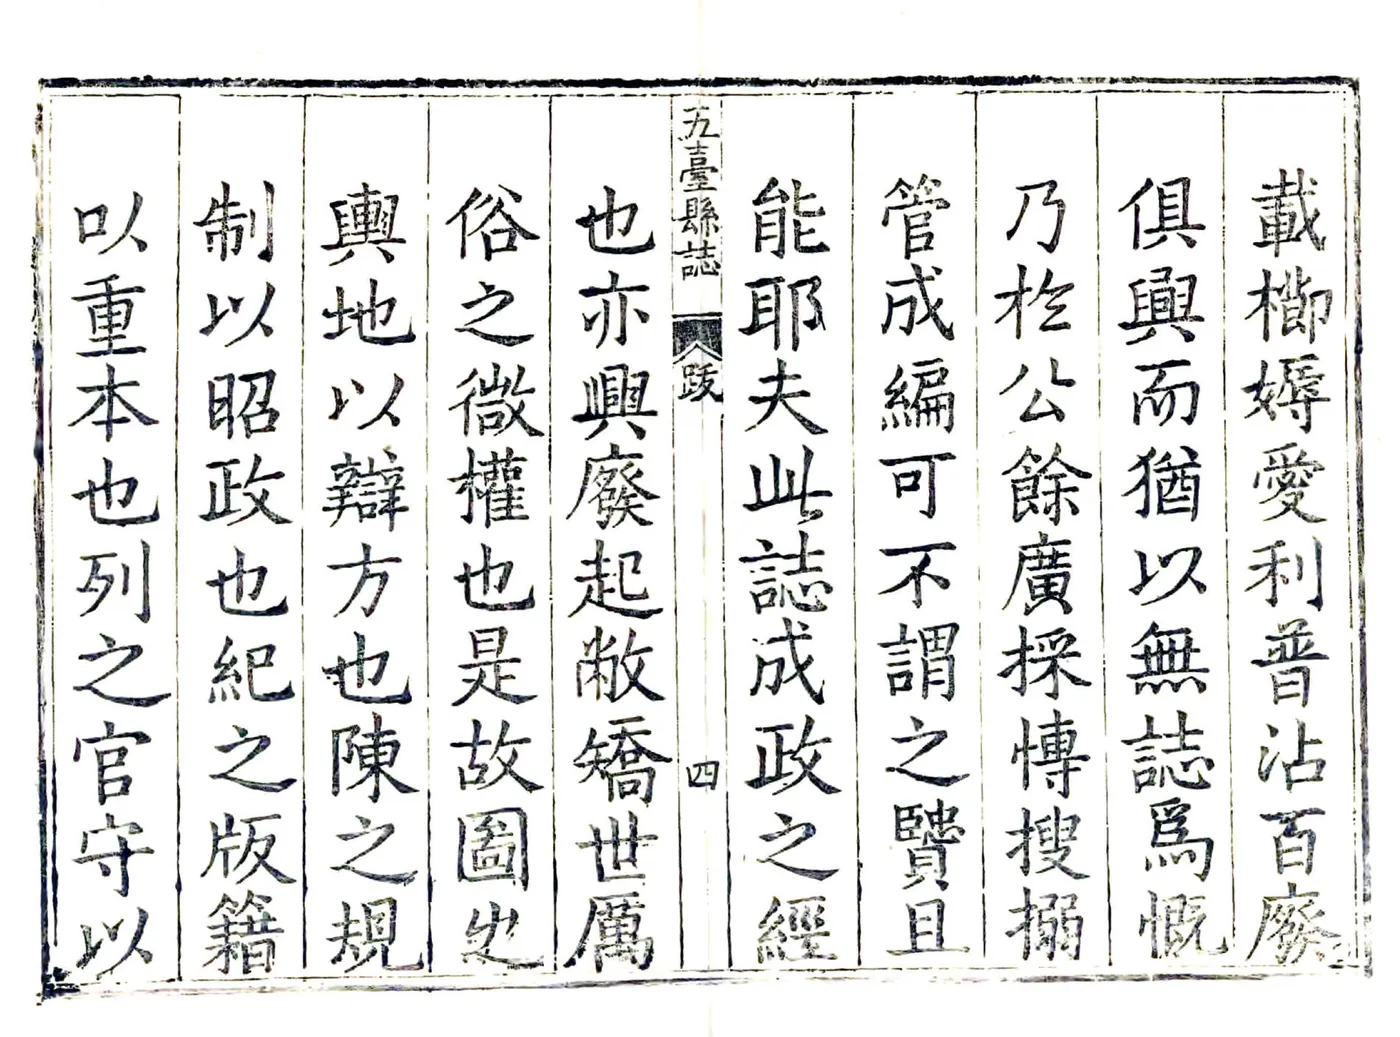 載櫛媷愛利普沾百廢
俱興而猶以無誌爲慨
乃於公餘廣採博搜搦
管成編可不謂之贒且
能耶夫此誌成政之經
五臺縣誌
跋
四
也亦興廢起敝矯世厲
俗之微權也是故圖之
輿地以辯方也陳之規
制以昭政也紀之版籍
以重本也列之官守以